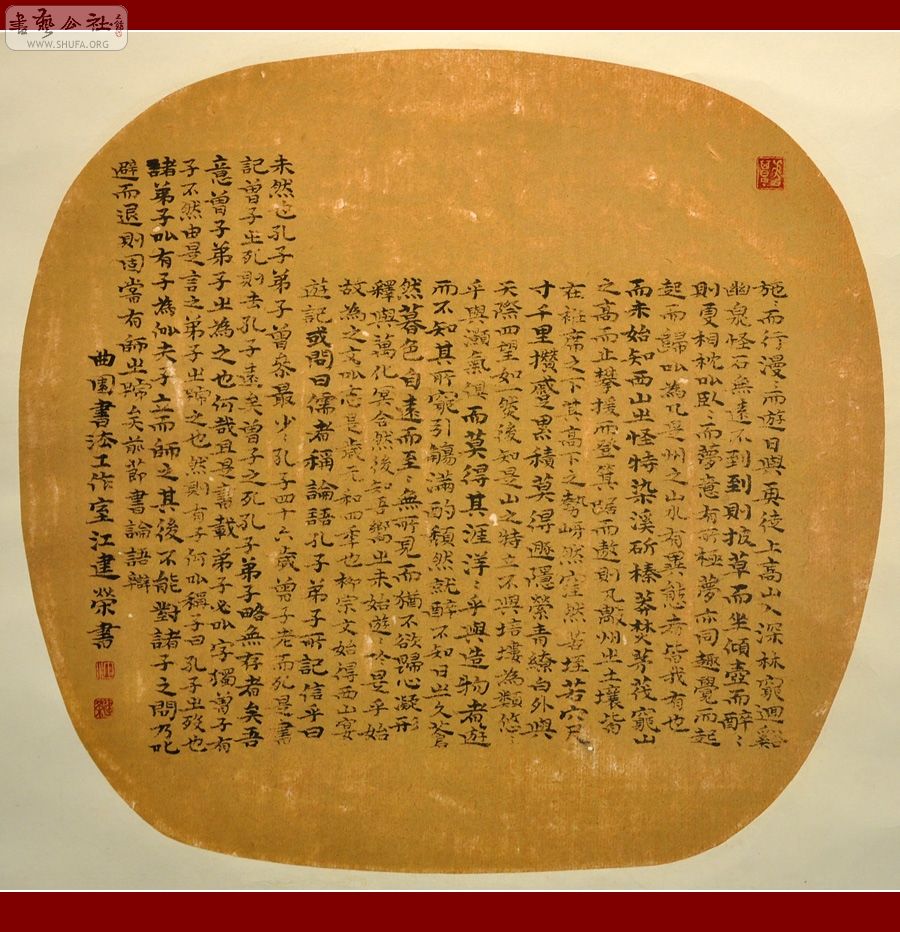 書藝公社
WWW.SHUFA.ORG
施〻而行漫〻而遊日與其徒上高山入深林窮迴谿
幽泉怪石無遠不到到則披草而坐傾壺而醉〻
則更相枕以臥〻而夢意有所極夢亦同趣覺而起
起而歸以為凡是州之山水有異態者皆我有也
而未始知西山之怪特染溪斫榛莽焚茅茷窮山
之高而止攀援而登箕踞而遨則凡數州之土壤皆
在衽席之下其高下之勢岈然窪然若垤若穴尺
寸千里攢蹙累積莫得遯隱縈青繚白外與
天際四望如然後知是山之特立不與培塿為類悠〻
乎與灝氣俱而莫得其涯洋〻乎與造物者遊
而不知其所窮引觴滿酌頹然就醉不知日之入蒼
然暮色自遠而至〻無所見而猶不欲歸心凝形
釋與萬化冥合然後知吾嚮之未始遊〻於是乎始
故為之文以志是歲元和四年也柳宗文始得西山宴
遊記或問曰儒者稱論語孔子弟子所記信乎曰
未然也孔子弟子曾參最少〻孔子四十六歲曾子老而死是書
記曾子之死則去孔子遠矣曾子之死孔子弟子略無存者矣吾
意曾子弟子之為之也何哉且是書載弟子必以字獨曾子有
子不然由是言之弟子之號之也然則有子何以稱子曰孔子之歿也
諸弟子以有子為似夫子立而師之其後不能對諸子之問乃叱
避而退則固嘗有師之號矣前節書論語辯
曲園書法工作室江建榮書